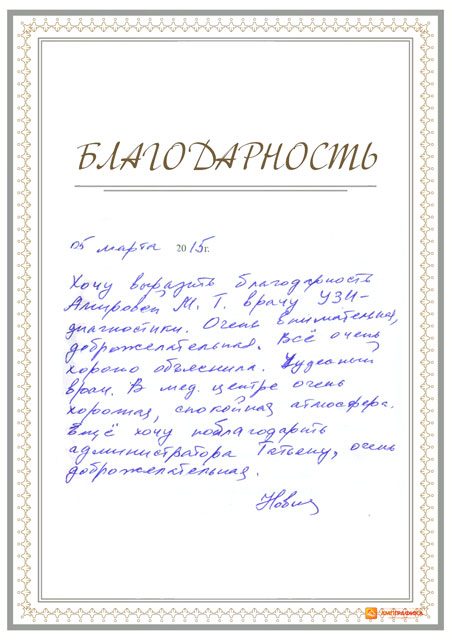 БЛАГОДАРНОСТЬ
05 марта 2015г.
Хочу выразить благодарность
Амировой М. Т. врачу УЗИ-
диагностики. Очень внимательная,
доброжелательная. Всё очень
хорошо объяснила. Чудесный
врач. В мед. центре очень
хорошая, спокойная атмосфера.
Ещё хочу поблагодарить
администратора Татьяну, очень
доброжелательная.